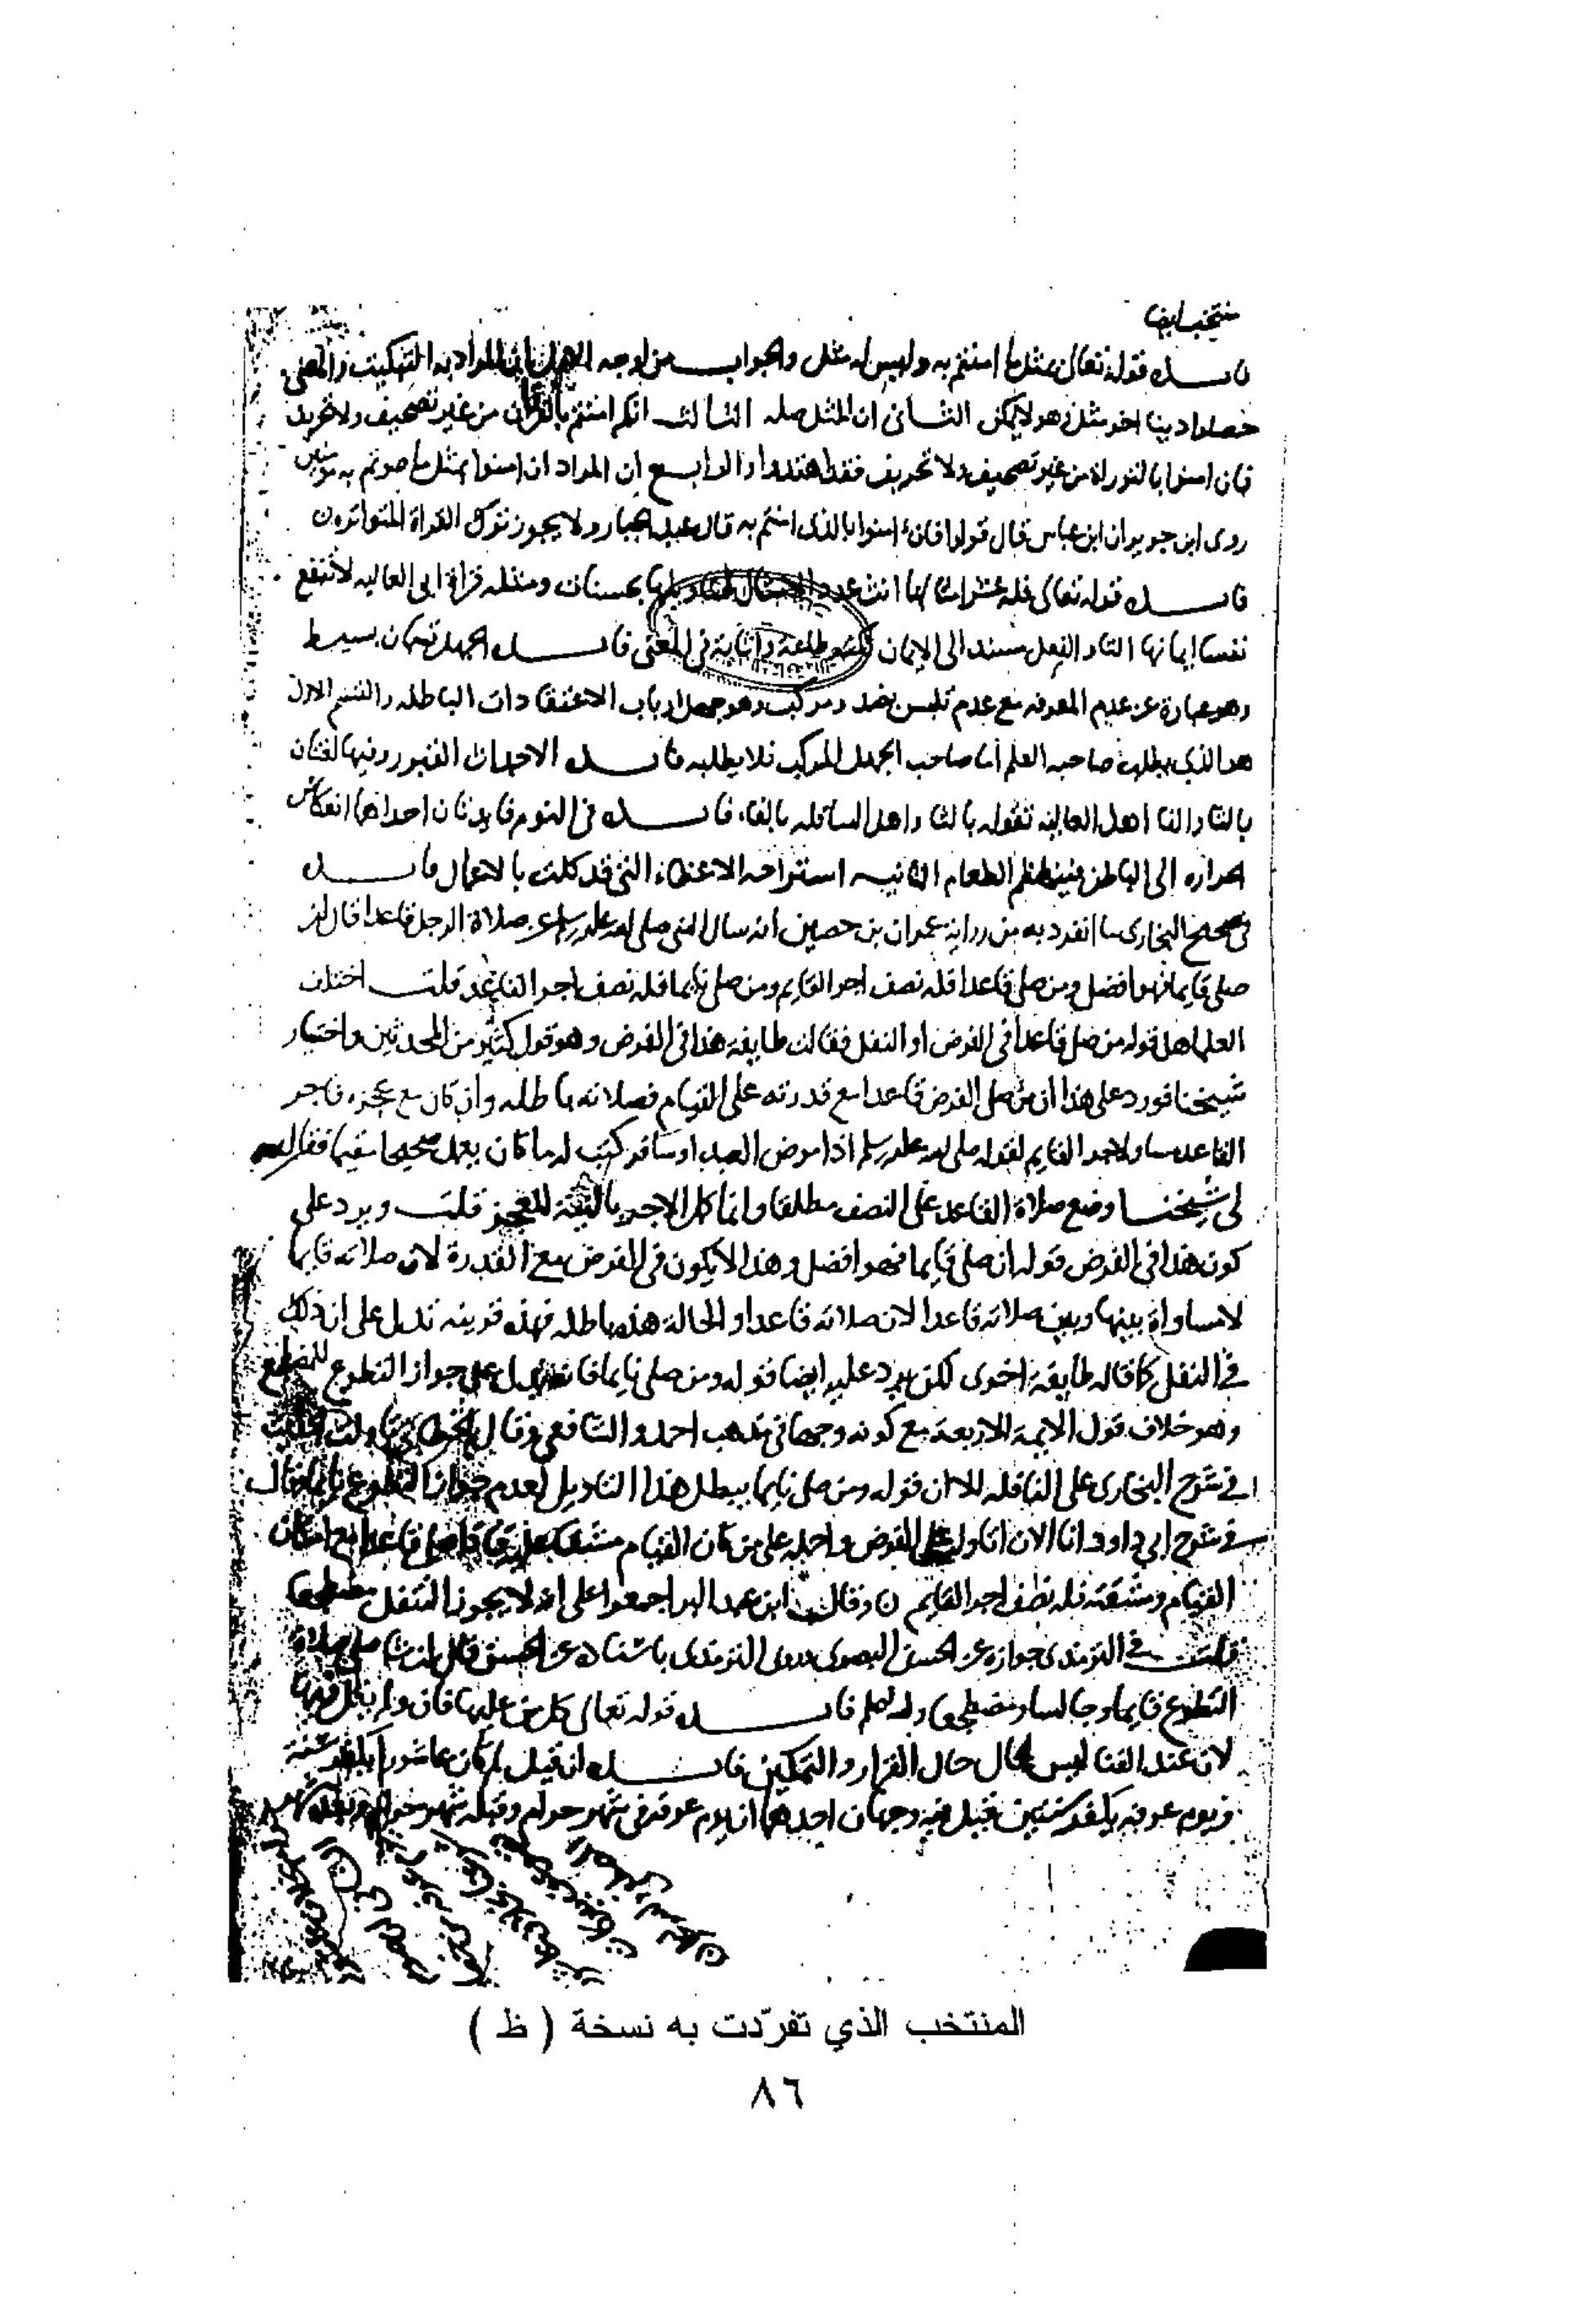 منتخب ايضا
فايده قوله تعالى بمثل ما امنتم به وليس له مثل والجواب من اوجه الاول ان المراد به التبكيت والمعنى
حصلوا دينا اخر مثله وهو لا يمكن الثاني ان المثل صله الثالث انكم امنتم بالقران من غير تصحيف ولا تحريف
فان امنوا بالتوراة من غير تصحيف ولا تحريف فقد اهتدوا والرابع ان المراد ان امنوا بمثل ما صرتم به مومنين
روى ابن جرير ان ابن عباس قال قولوا فان امنوا بالذي امنتم به قال عبد الجبار ولا يجوز ترك القراة المتواترة
فايده قوله تعالى فله عشر امثالها انث عدد الامثال لتاويلها بحسنات ومثله قراة ابي العاليه لا تنفع
نفسا ايمانها التا والفعل مسند الى الايمان لكنه طاعة وانابة في المعنى فايده الجهل قسمان بسيط
وهو عبارة عن عدم المعرفه مع عدم تلبس بضد ومركب وهو جهل ارباب الاعتقادات الباطله والقسم الاول
هو الذي يطلب صاحبه العلم اما صاحب الجهل المركب فلا يطلبه فايده الاجداث القبور وفيها لغتان
بالثا والفا اهل العاليه تقوله بالثا واهل السافله بالفاء فايده في النوم فايدتان احداهما انعكاس
الحراره الى الباطن فينهضم الطعام الثانيه استراحه الاعضاء التي قد كلت بالاعمال فايده
في صحيح البخاري مما انفرد به من رواية عمران بن حصين انه سال النبي صلى الله عليه وسلم عن صلاة الرجل قاعدا قال ان
صلى قايما فهو افضل ومن صلى قاعدا فله نصف اجر القايم ومن صلى نايما فله نصف اجر القاعد قلت اختلف
العلما هل قوله من صلى قاعدا في الفرض او النفل فقالت طايفة هذا في الفرض وهو قول كثير من المحدثين واختيار
شيخنا فورد على هذا ان من صلى الفرض قاعدا مع قدرته على القيام فصلاته باطله وان كان مع عجزه فاجر
القاعد مساو لاجر القايم لقوله صلى الله عليه وسلم اذا مرض العبد او سافر كتب له ما كان يعمل صحيحا مقيما فقال
لي شيخنا وضع صلاة القاعد على النصف مطلقا وانما كمل الاجر بالنية للعجز قلت ويرد على
كون هذا في الفرض قوله ان صلى قايما فهو افضل وهذا لا يكون في الفرض مع القدرة لان صلاته قايما
لا مساواة بينها وبين صلاته قاعدا لان صلاته قاعدا والحالة هذه باطله فهذه قرينه تدل على ان ذلك
في النفل كما قاله طايفة اخرى لكن يرد عليه ايضا قوله ومن صلى نايما فانه يدل على جواز التطوع للمضطجع
وهو خلاف قول الايمة الاربعة مع كونه وجها في مذهب احمد والشافعي وقال الخطابي تاولت الحديث
في شرح البخاري على النافله الا ان قوله ومن صلى نايما يبطل هذا التاويل لعدم جواز التطوع نايما وقال
في شرح ابي داود انا الان اتاوله على الفرض واحمله على من كان القيام مشقا عليه فاذا صلى قاعدا مع امكان
القيام ومشقته فله نصف اجر القايم وقال ابن عبد البر اجمعوا على انه لا يجوز التنفل مضطجعا
قلت في الترمذي جوازه عن الحسن البصري روى الترمذي باسناده عن الحسن قال ان شا صلى صلاة
التطوع قايما وجالسا ومضطجعا والله اعلم فايده قوله تعالى كل من عليها فان ولم يقل فيها
لان عند الفنا ليس الحال حال القرار والتمكين فايده ان قيل لم كان عاشورا يكفر سنة
ويوم عرفه يكفر سنتين قيل فيه وجهان احدهما ان يوم عرفة في شهر حرام وقبله شهر حرام وبعده شهر
المنتخب الذي تفرّدت به نسخة ( ظ )
٨٦